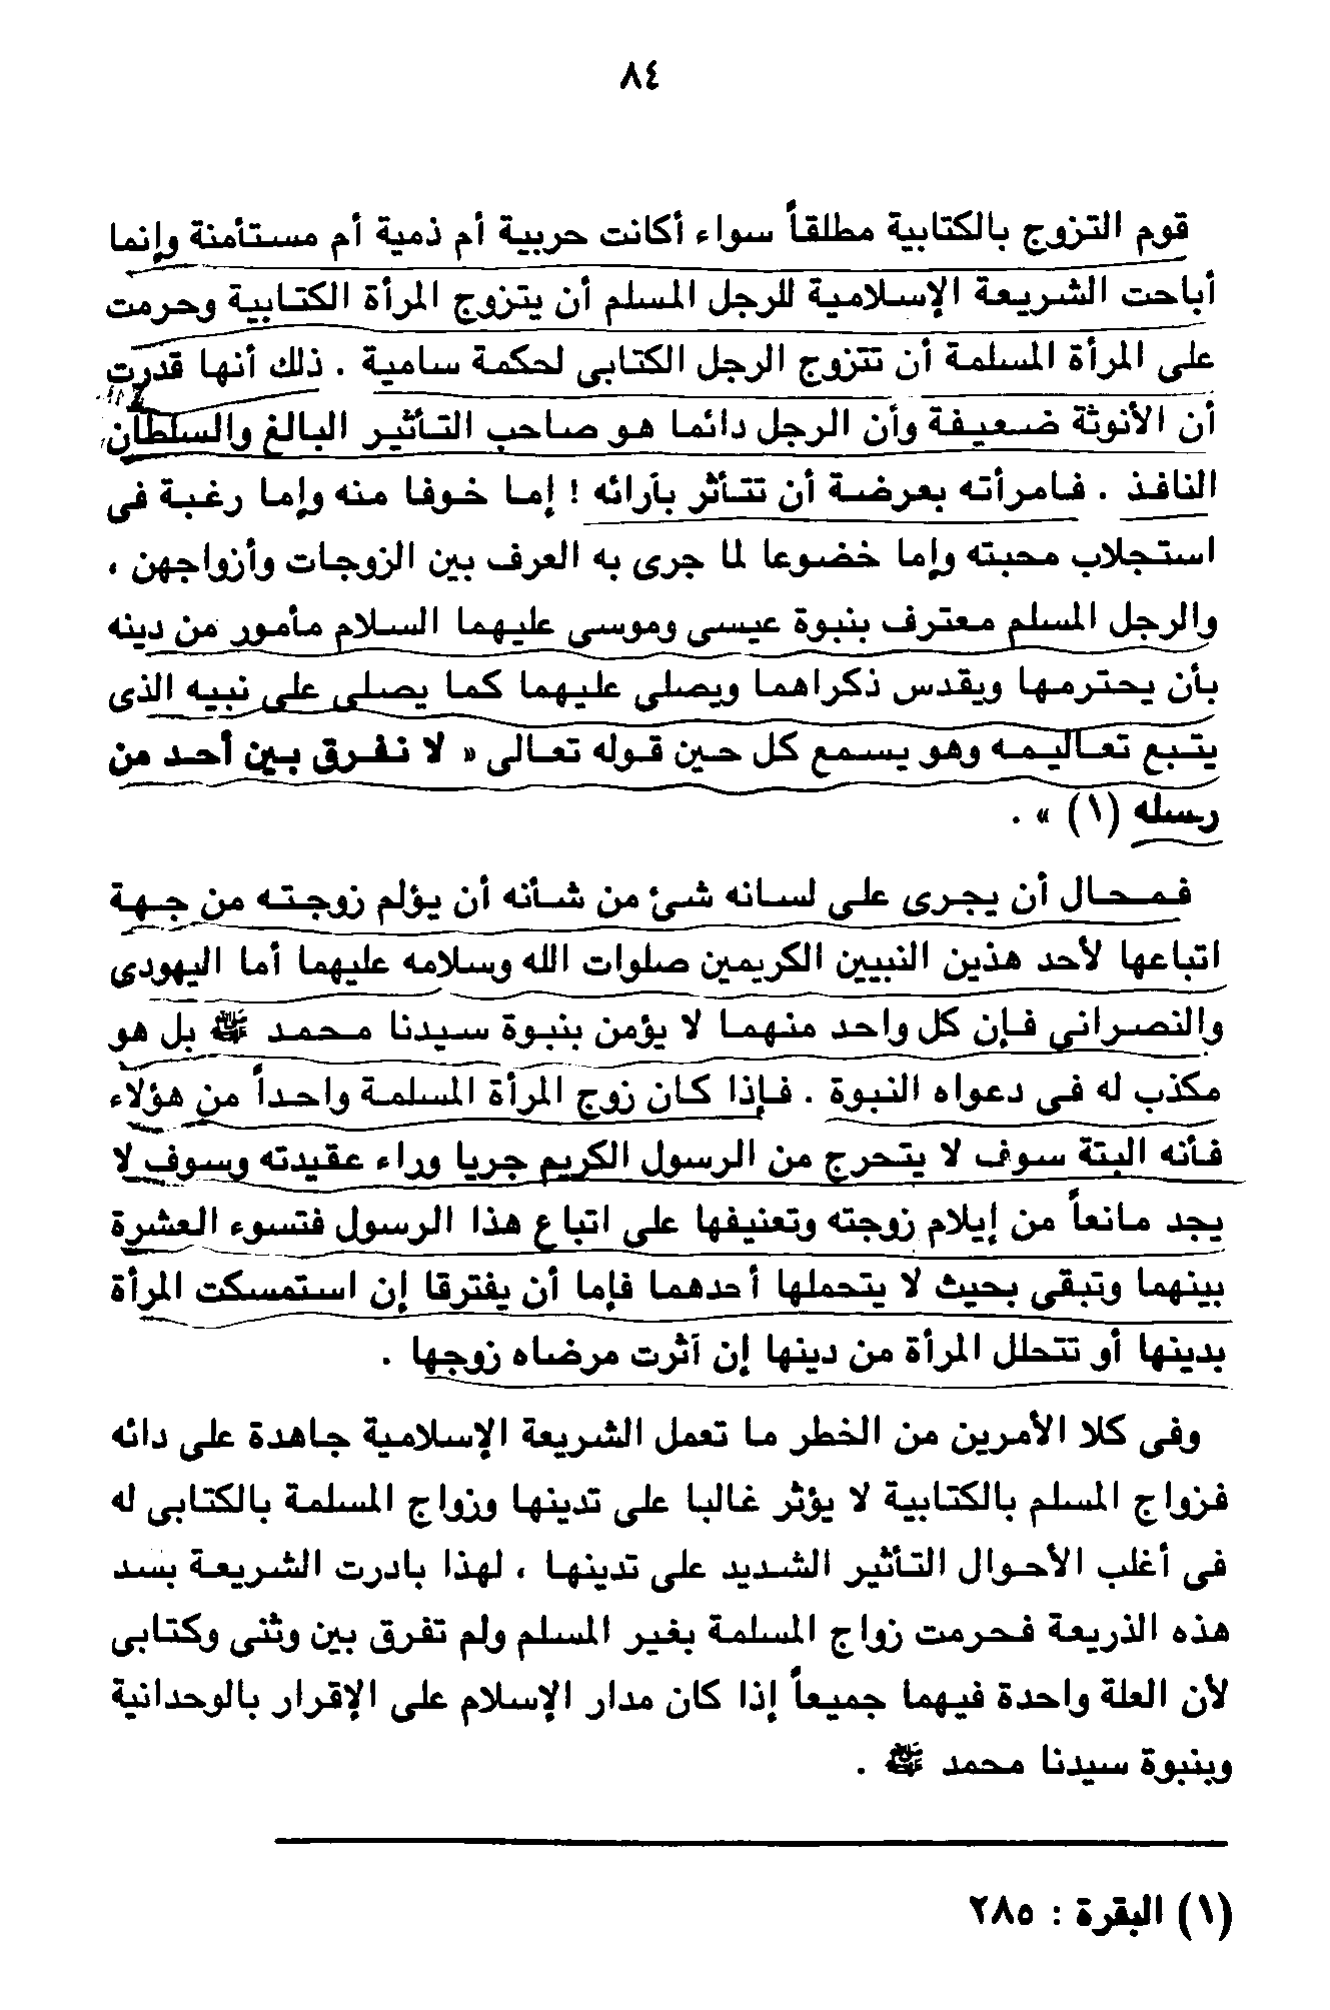 ٨٤
قوم التزوج بالكتابية مطلقاً سواء أكانت حربية أم ذمية أم مستأمنة وإنما
أباحت الشريعة الإسلامية للرجل المسلم أن يتزوج المرأة الكتابية وحرمت
على المرأة المسلمة أن تتزوج الرجل الكتابى لحكمة سامية . ذلك أنها قدرت
أن الأنوثة ضعيفة وأن الرجل دائما هو صاحب التأثير البالغ والسلطان
النافذ . فامرأته بعرضة أن تتأثر بآرائه ! إما خوفا منه وإما رغبة فى
استجلاب محبته وإما خضوعا لما جرى به العرف بين الزوجات وأزواجهن ،
والرجل المسلم معترف بنبوة عيسى وموسى عليهما السلام مأمور من دينه
بأن يحترمها ويقدس ذكراهما ويصلى عليهما كما يصلى على نبيه الذى
يتبع تعاليمه وهو يسمع كل حين قوله تعالى « لا نفرق بين أحد من
رسله (١) » .
فمحال أن يجرى على لسانه شئ من شأنه أن يؤلم زوجته من جهة
اتباعها لأحد هذين النبيين الكريمين صلوات الله وسلامه عليهما أما اليهودى
والنصراني فإن كل واحد منهما لا يؤمن بنبوة سيدنا محمد ﷺ بل هو
مكذب له فى دعواه النبوة . فإذا كان زوج المرأة المسلمة واحداً من هؤلاء
فأنه البتة سوف لا يتحرج من الرسول الكريم جريا وراء عقيدته وسوف لا
يجد مانعاً من إيلام زوجته وتعنيفها على اتباع هذا الرسول فتسوء العشرة
بينهما وتبقى بحيث لا يتحملها أحدهما فإما أن يفترقا إن استمسكت المرأة
بدينها أو تتحلل المرأة من دينها إن آثرت مرضاه زوجها .
وفى كلا الأمرين من الخطر ما تعمل الشريعة الإسلامية جاهدة على دائه
فزواج المسلم بالكتابية لا يؤثر غالبا على تدينها وزواج المسلمة بالكتابى له
فى أغلب الأحوال التأثير الشديد على تدينها ، لهذا بادرت الشريعة بسد
هذه الذريعة فحرمت زواج المسلمة بغير المسلم ولم تفرق بين وثنى وكتابى
لأن العلة واحدة فيهما جميعاً إذا كان مدار الإسلام على الإقرار بالوحدانية
وبنبوة سيدنا محمد ﷺ .
(١) البقرة : ٢٨٥